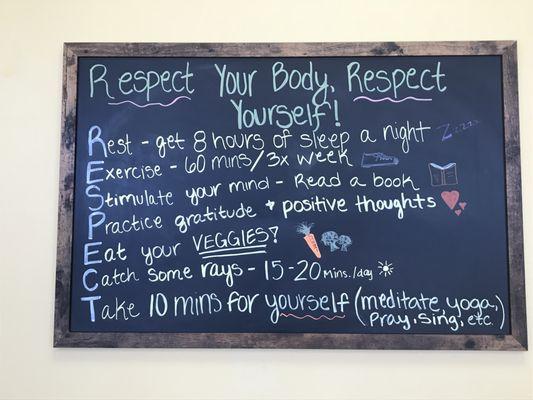 Respect Your Body, Respect
Yourself!
Rest - get 8 hours of sleep a night Zzzzz
Exercise - 60 mins/3x week
Stimulate your mind - Read a book
Practice gratitude + positive thoughts
Eat your VEGGIES!
Catch some rays - 15-20 mins./day
Take 10 mins for yourself (meditate, yoga,
Pray, Sing, etc.)